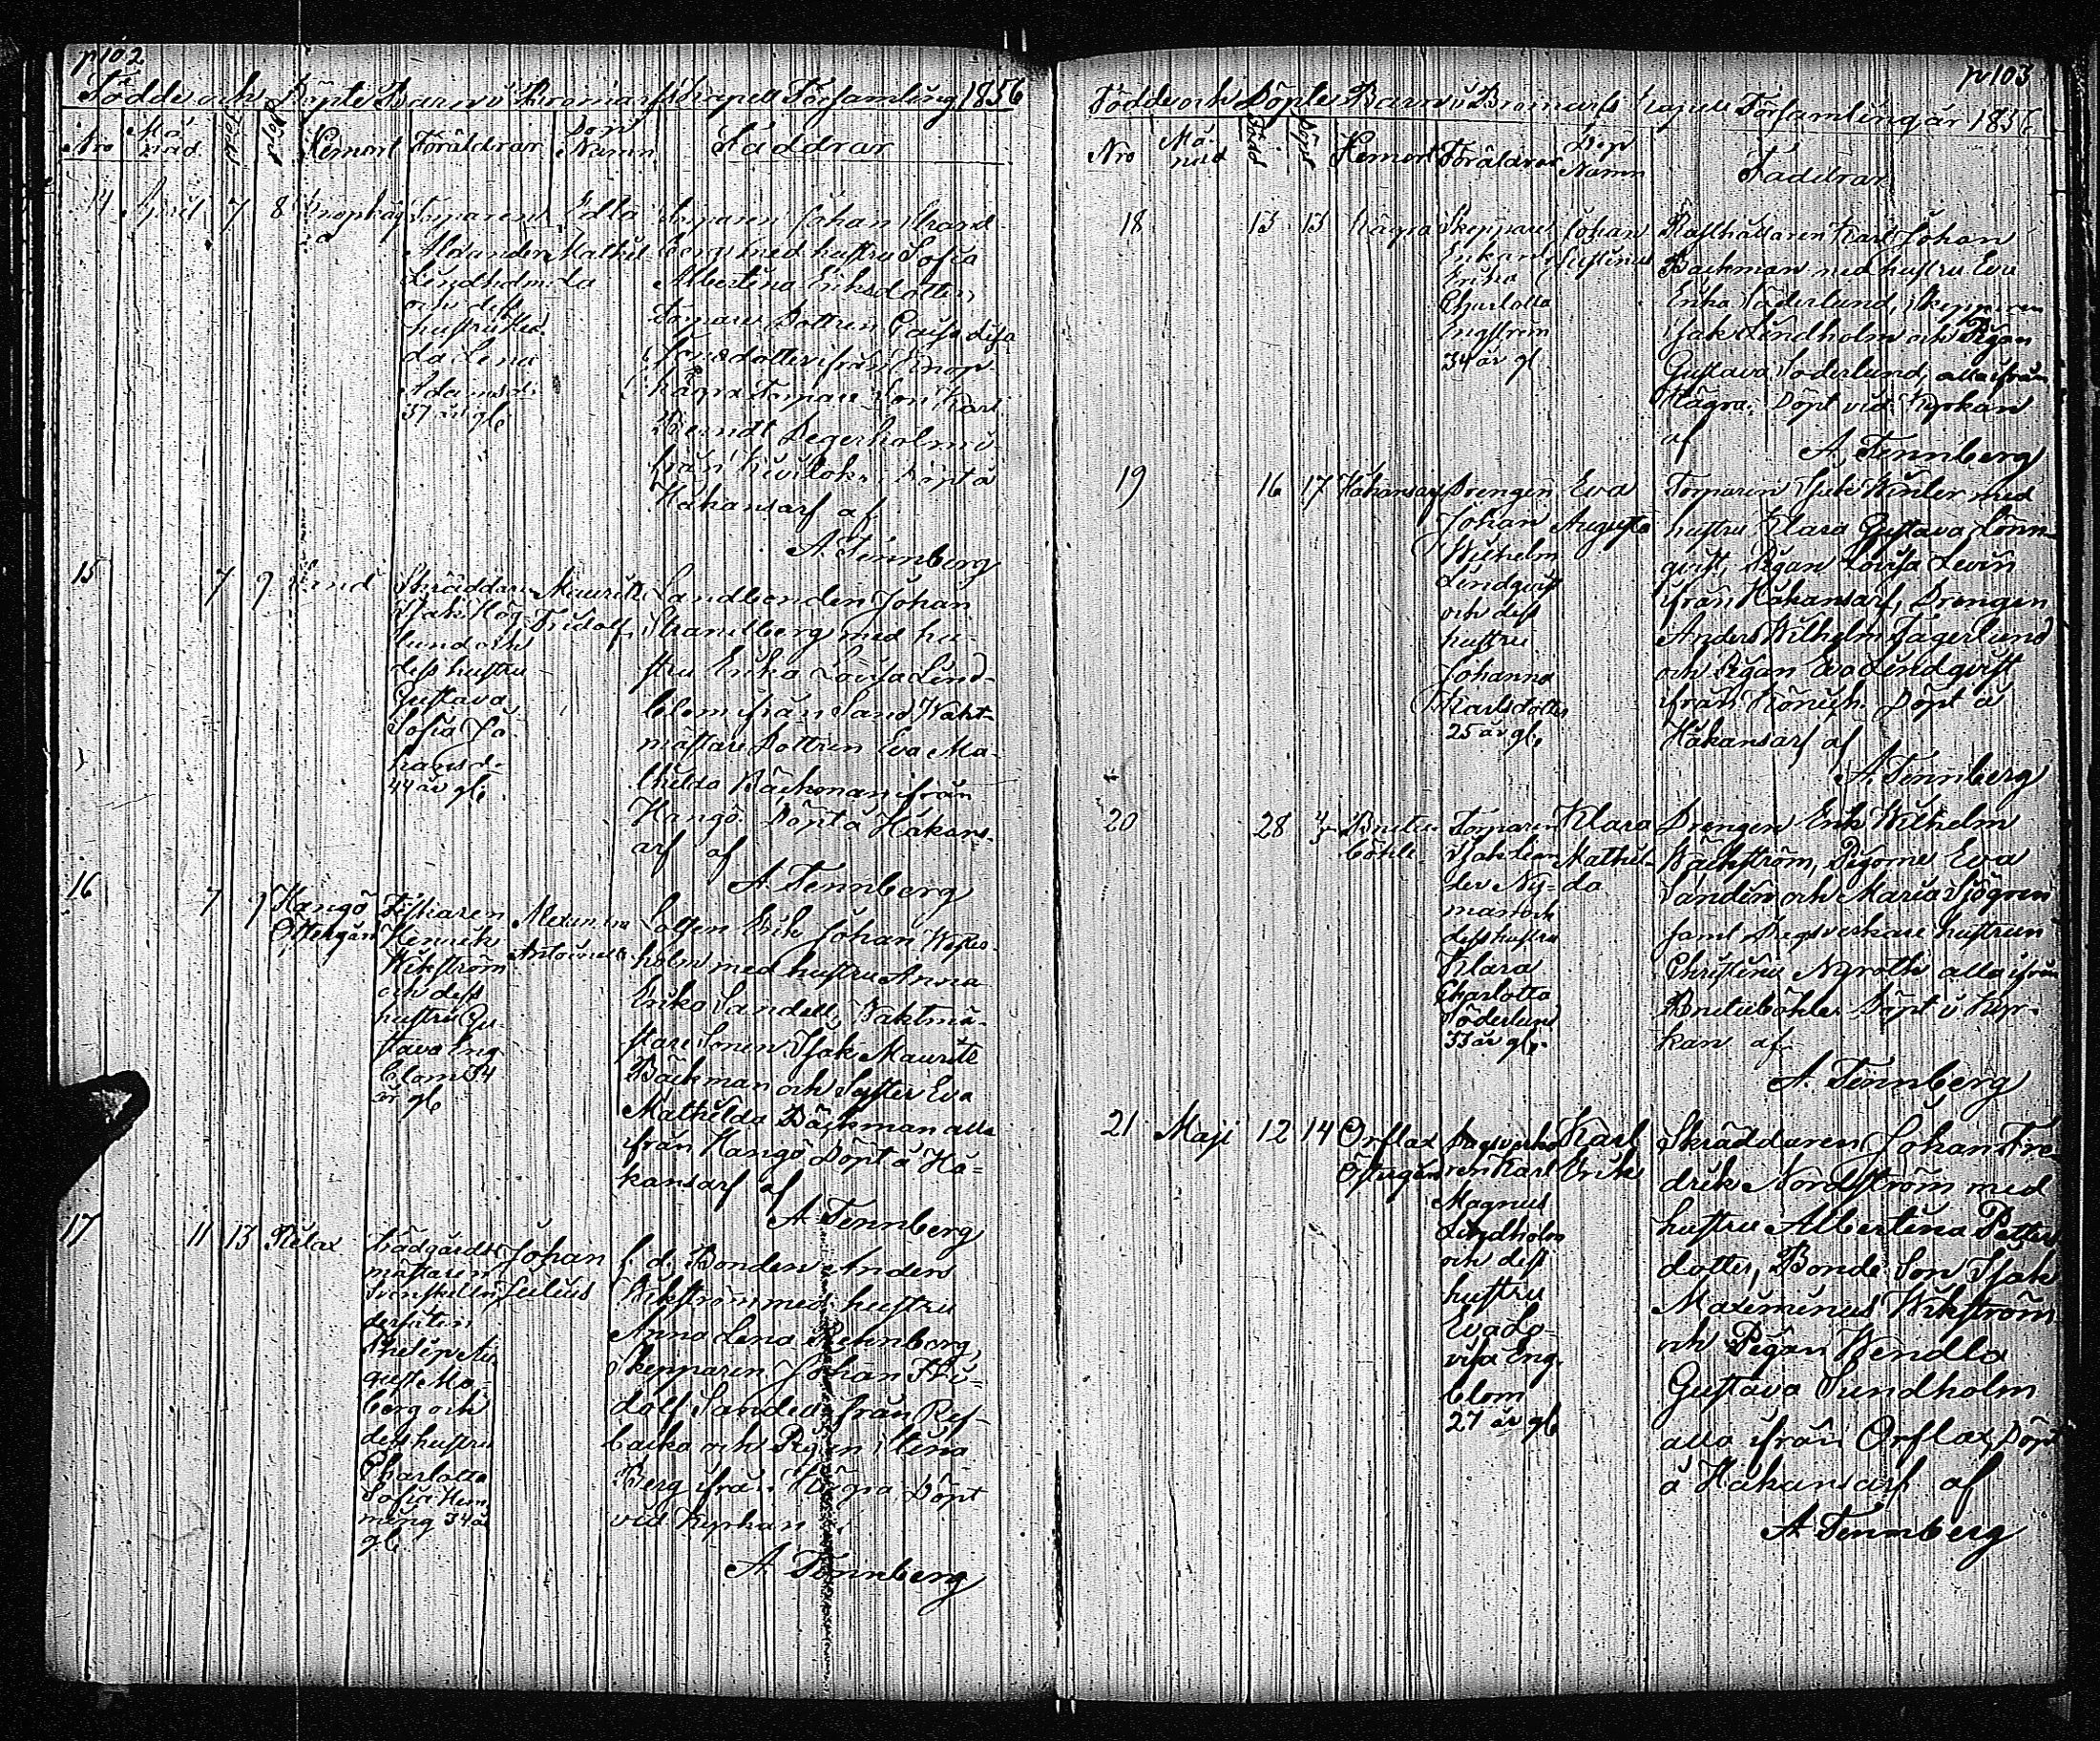 p 102
Födde och Döpte Barn i Bromarfs Kapell Församling 1856
Nro Månad Född Döpt Hemort Föräldrar Dop Namn Faddrar
14 April 7 8
Torparen
Alexander
Lindholm
och dess
hustru Hed
da Lena
Adamsd:
37 år gl
Edla
Mathil
da
Torparen Johan Strand
berg med hustru Sofia
Albertina Eriksdotter,
Torpare Dottren Caisa Lisa
Jonsdotter ifrån Knop
hägra Torpare Son Karl
Berndt Degerholm i
från Döpt å
Håkansarf af
A. Tennberg
15 7 9 Sand
Skräddaren
Isak Hög
lund och
dess hustru
Gustava
Sofia Jo
hansd.
44 år gl.
Maurits
Fridolf
Landbonden Johan
Strandberg med hu
stru Erika Lovisa Lind
blom ifrån Sand Wakt
mästare Dottren Eva Ma
thilda Bäckman ifrån
Hangö. Döpt å Håkans
arf af
A. Tennberg
16 7 9 Hangö
Fiskaren
Henrik
Wikström
och dess
hustru Gu
stava Eng
blom 34
år gl
Antoinette
Lotsen Erik Johan Wester
holm med hustru Anna
Erika Sandell, Waktmä-
stare Sonen Isak Maurits
Bäckman och Syster Eva
Mathilda Bäckman alla
ifrån Hangö Döpt å Hå=
kansarf af
A. Tennberg
17 11 13 Rilax
Trädgårds
mästaren
Svenska Un
dersåten
Philip Au
gust Mo
berg och
dess hustru
Charlotta
Sofia Hem
ming 34 år
gl
Johan
Julius
f. d. Bonden Anders
Wikström med hustru
Anna Lena Rehnberg,
Skepparen Johan Ru=
dolf Sandell från Ref
backa och Pigan Stina
Berg ifrån Hägra, Döpt
vid Kyrkan af
A. Tennberg
p 103
Födde och Döpte Barn i Bromarfs Kapell Församling år 1856
Nro Månad Född Döpt Hemort Föräldrar Dop Namn Faddrar
18 13 15 Hägra
Skeppare
Enkan
Erika
Charlotta
Engström
34 år gl.
Johan
Justinus
Rusthållaren Karl Johan
Backman med hustru Eva
Erika Söderlund, Skepparen
Isak Lindholm och Pigan
Gustava Söderlund, alla ifrån
Hägra. Döpt vid Kyrkan
af A. Tennberg
19 16 17 Håkansarf
Drengen
Johan
Wilhelm
Lindqvist
och dess
hustru
Johanna
Karlsdotter
25 år gl,
Eva
Augusta
Torparen Isak Winter med
hustru Klara Gustava Lönn-
qvist, Pigan Lovisa Levin
ifrån Håkansarf, Drengen
Anders Wilhelm Fagerlund
och Pigan Eva Lindqvist
ifrån Döpt å
Håkansarf af
A. Tennberg
20 28 4/5
Torparen
Isak
der Ny-
man och
dess hustru
Klara
Charlotta
Söderlund
33 år gl.
Klara
Mathil-
da
Drengen Erik Wilhelm
Bäckström, Pigorna Eva
Sandin och Maria Sjögren
samt Dagsverkare hustrun
Christina Nyroth alla ifrån
Bredeböhle. Döpt i Kyr-
kan af
A. Tennberg
21 Maji 12 14 Orflax
Dagsverka
ren Karl
Magnus
Lindholm
och dess
hustru
Eva Lo-
visa Eng
blom
27 år gl
Karl
Erik
Skräddaren Johan Fre
drik Nordström med
hustru Albertina Petters
dotter, Bonde Son Isak
Maximinus Wikström
och Pigan Wendla
Gustava Sundholm
alla ifrån Orflax, Döpt
å Håkansarf af
A. Tennberg